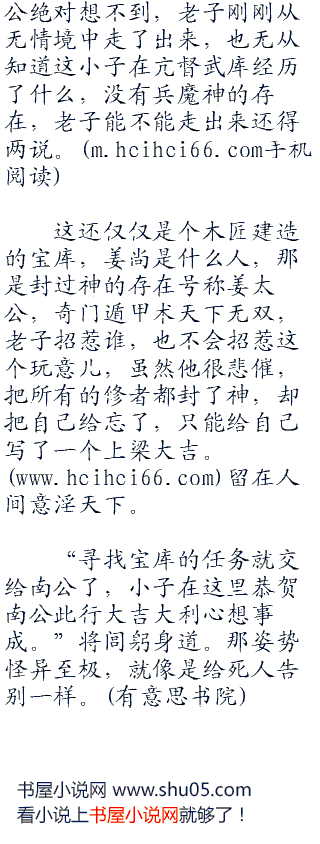 公绝对想不到，老子刚刚从
无情境中走了出来，也无从
知道这小子在亢督武库经历
了什么，没有兵魔神的存
在，老子能不能走出来还得
两说。(m.hcihci66.com手机
阅读)
这还仅仅是个木匠建造
的宝库，姜尚是什么人，那
是封过神的存在号称姜太
公，奇门遁甲术天下无双，
老子招惹谁，也不会招惹这
个玩意儿，虽然他很悲催，
把所有的修者都封了神，却
把自己给忘了，只能给自己
写了一个上梁大吉。
(www.hcihci66.com)留在人
间意淫天下。
“寻找宝库的任务就交
给南公了，小子在这里恭贺
南公此行大吉大利心想事
成。”将闾躬身道。那姿势
怪异至极，就像是给死人告
别一样。(有意思书院)
书屋小说网 www.shu05.com
看小说上书屋小说网就够了！